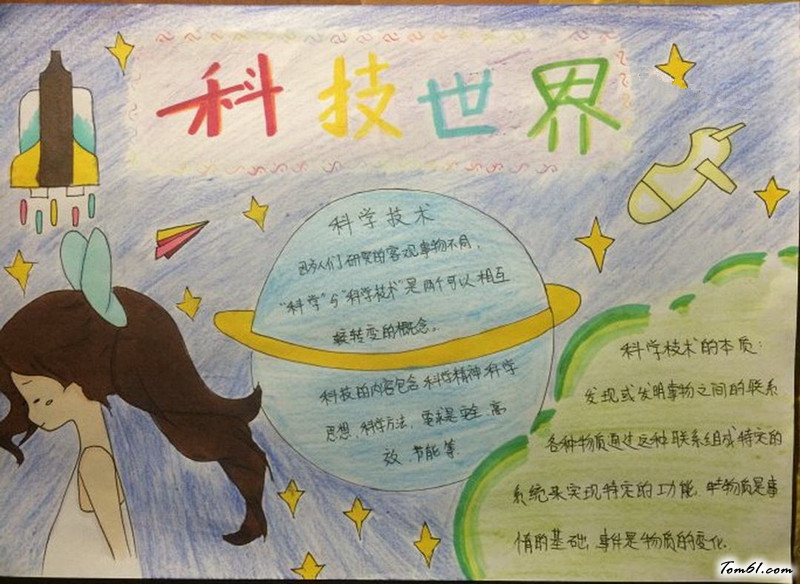 科技世界
科学技术
因为人们研究的客观事物不同,
“科学”与“科学技术”是两个可以相互
转变的概念。
科技的内容包含科学精神 科学
思想、科学方法,要求是 安全、高
效、节能等
科学技术的本质:
发现或发明事物之间的联系
各种物质通过这种联系组成特定的
系统来实现特定的功能,物质是事
情的基础,事件是物质的变化.
Tom61.com